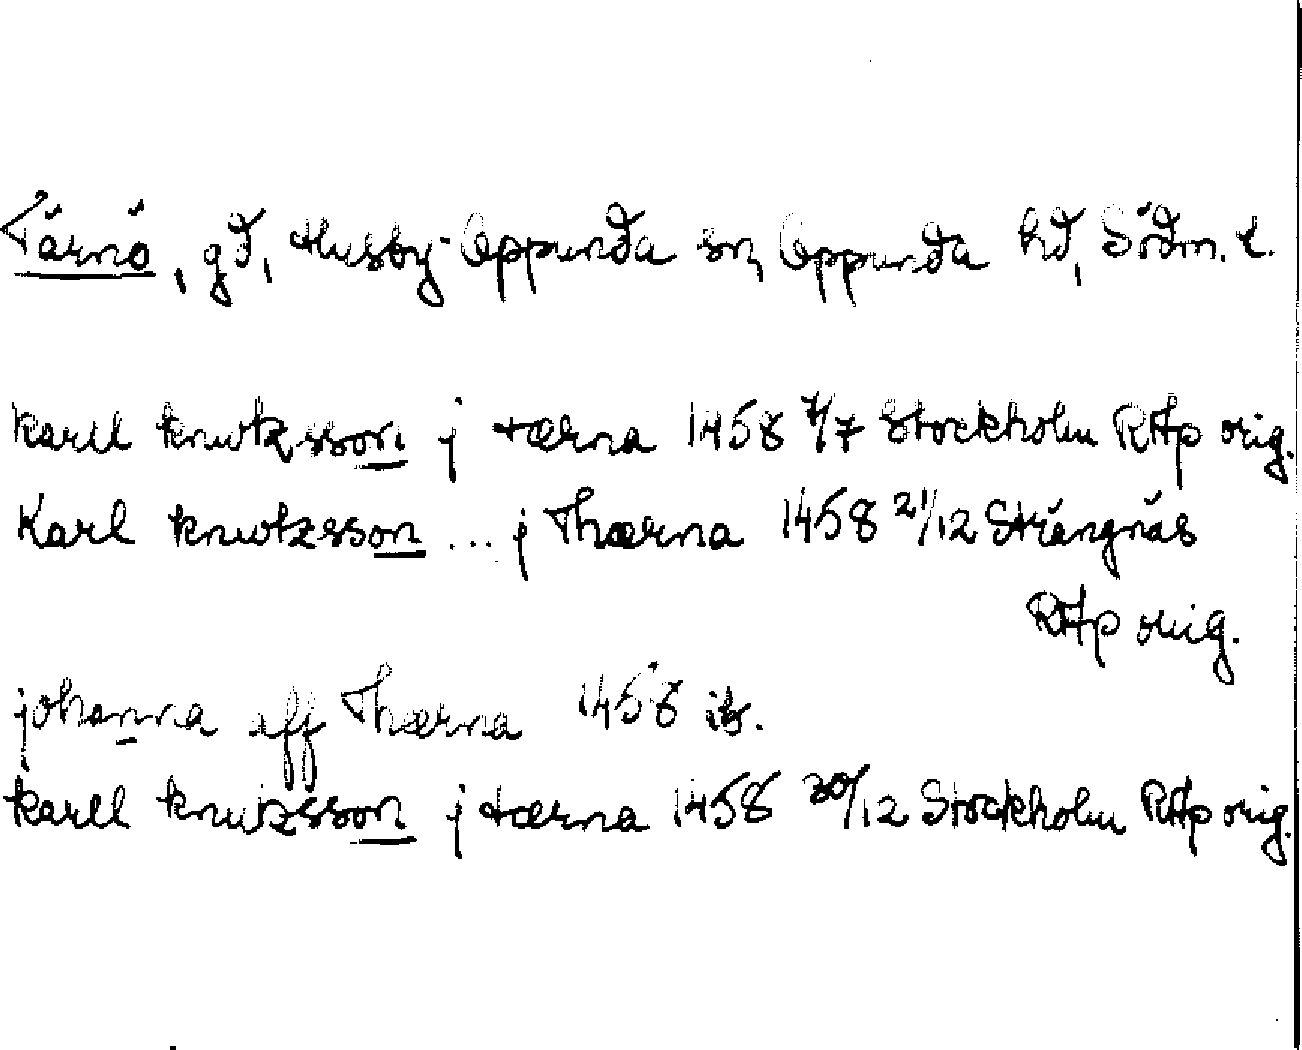 Tärnö, gd, Husby-Oppunda sn, Oppunda hd, Södm. l.
karll knwtzsson j tærna 1458 7/7 Stockholm RAp orig.
Karl knwtzsson ... j Thærna 1458 21/12 Strängnäs
RAp orig.
johanna aff Thærna 1458 ib.
karll knutzsson j tærna 1458 30/12 Stockholm RAp orig.